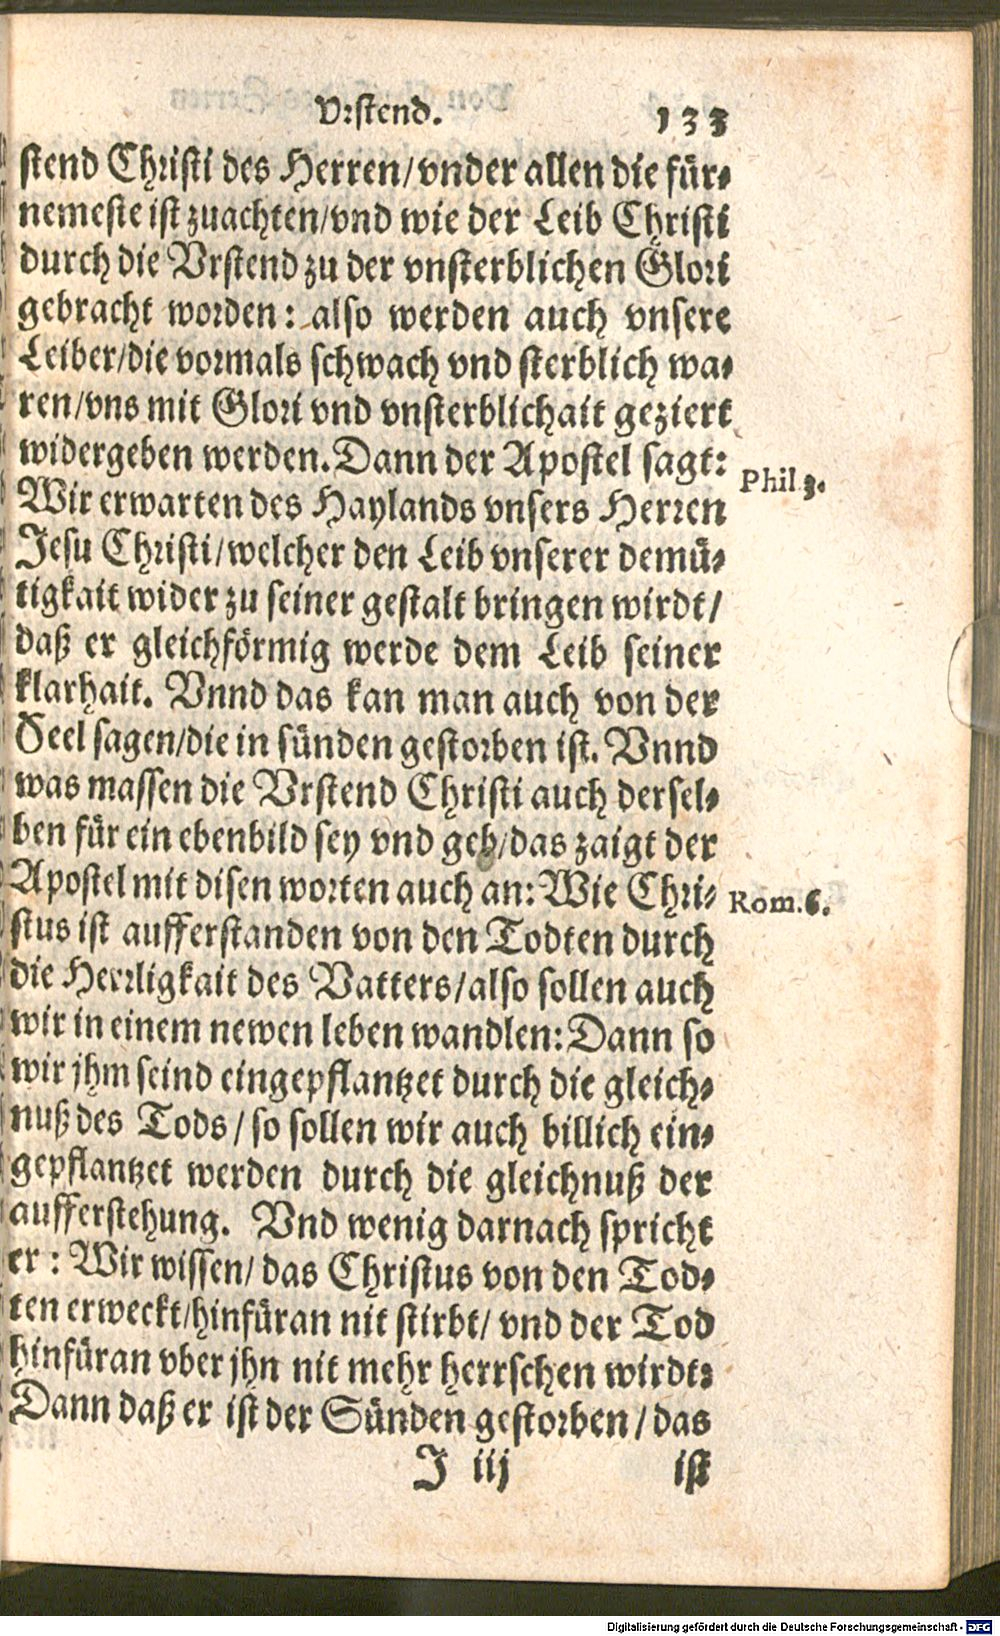 Vrstend. 133
stend Christi des Herren/vnder allen die für-
nemeste ist zuachten/vnd wie der Leib Christi
durch die Vrstend zu der vnsterblichen Glori
gebracht worden: also werden auch vnsere
Leiber/die vormals schwach vnd sterblich wa-
ren/vns mit Glori vnd vnsterblichait geziert
widergeben werden. Dann der Apostel sagt:
Phil 3.
Wir erwarten des Haylands vnsers Herren
Jesu Christi/welcher den Leib vnserer demü-
tigkait wider zu seiner gestalt bringen wirdt/
daß er gleichförmig werde dem Leib seiner
klarhait. Vnnd das kan man auch von der
Seel sagen/die in sünden gestorben ist. Vnnd
was massen die Vrstend Christi auch dersel-
ben für ein ebenbild sey vnd geb/das zaigt der
Apostel mit disen worten auch an: Wie Chri-
Rom. 6.
stus ist aufferstanden von den Todten durch
die Herrligkait des Vatters/also sollen auch
wir in einem newen leben wandlen: Dann so
wir jhm seind eingepflantzet durch die gleich-
nuß des Tods/so sollen wir auch billich ein-
gepflantzet werden durch die gleichnuß der
aufferstehung. Vnd wenig darnach spricht
er: Wir wissen/das Christus von den Tod-
ten erweckt/hinfüran nit stirbt/vnd der Tod
hinfüran vber jhn nit mehr herrschen wirdt:
Dann daß er ist der Sünden gestorben/das
J iij ist
Digitalisierung gefördert durch die Deutsche Forschungsgemeinschaft - DFG